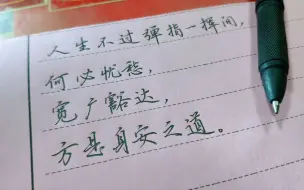 人生不过弹指一挥间,
何必忧愁,
宽广豁达,
方是身安之道。